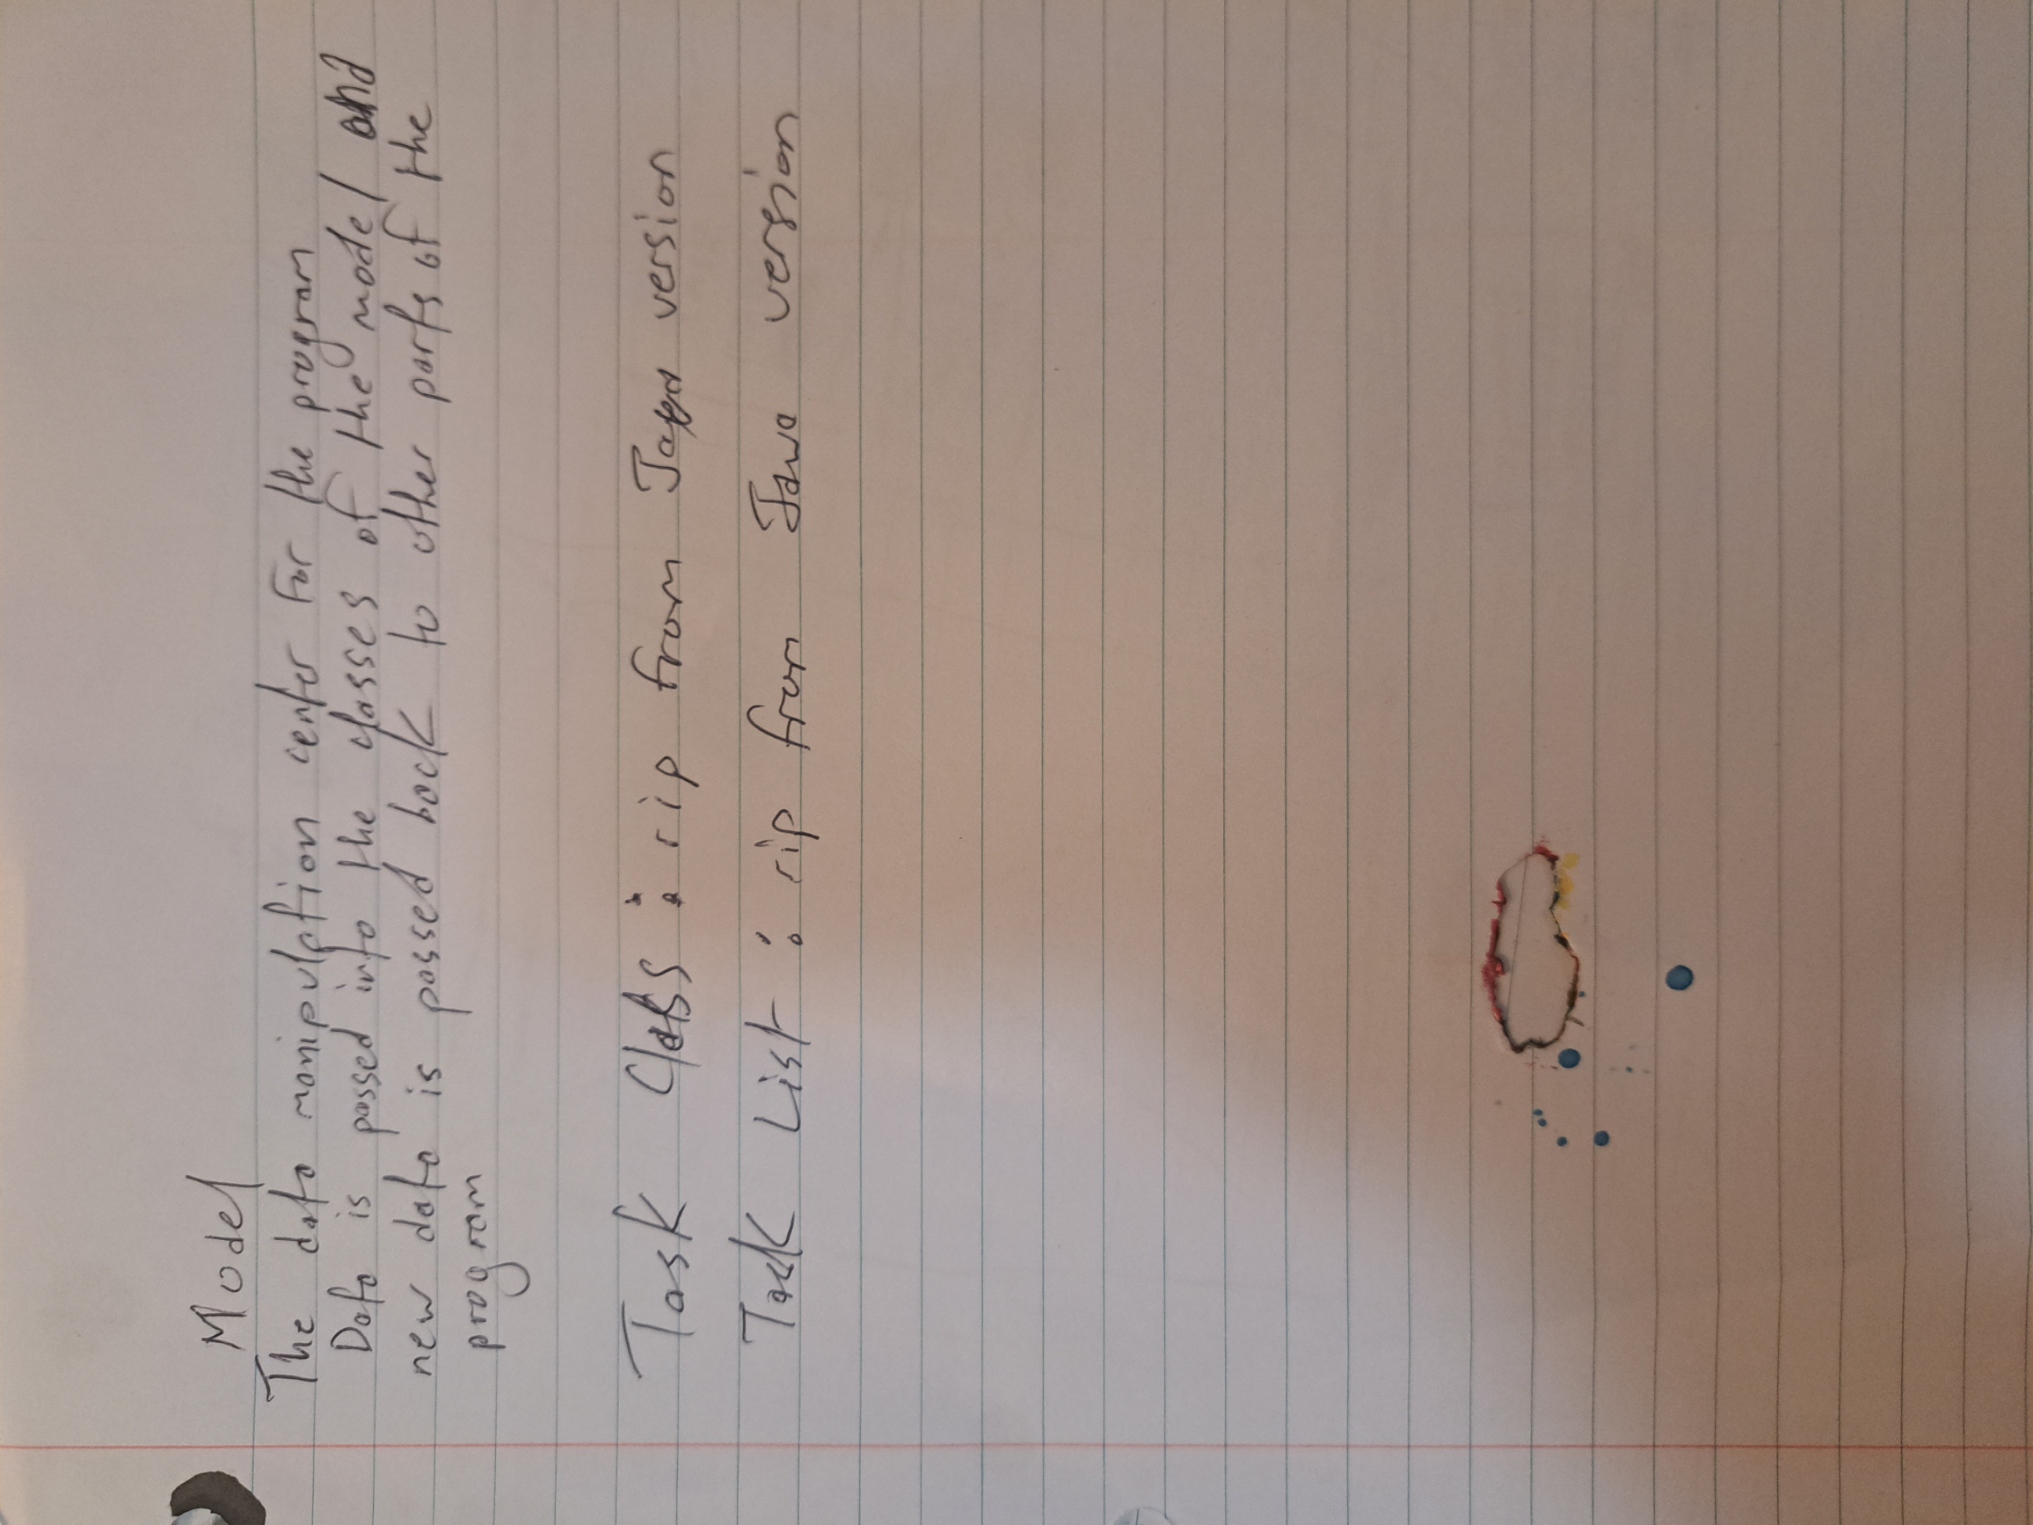 Model
The data manipulation center for the program
Data is passed into the classes of the model and
new data is passed back to other parts of the
program
Task Class : rip from Java version
Task List : rip from Java version